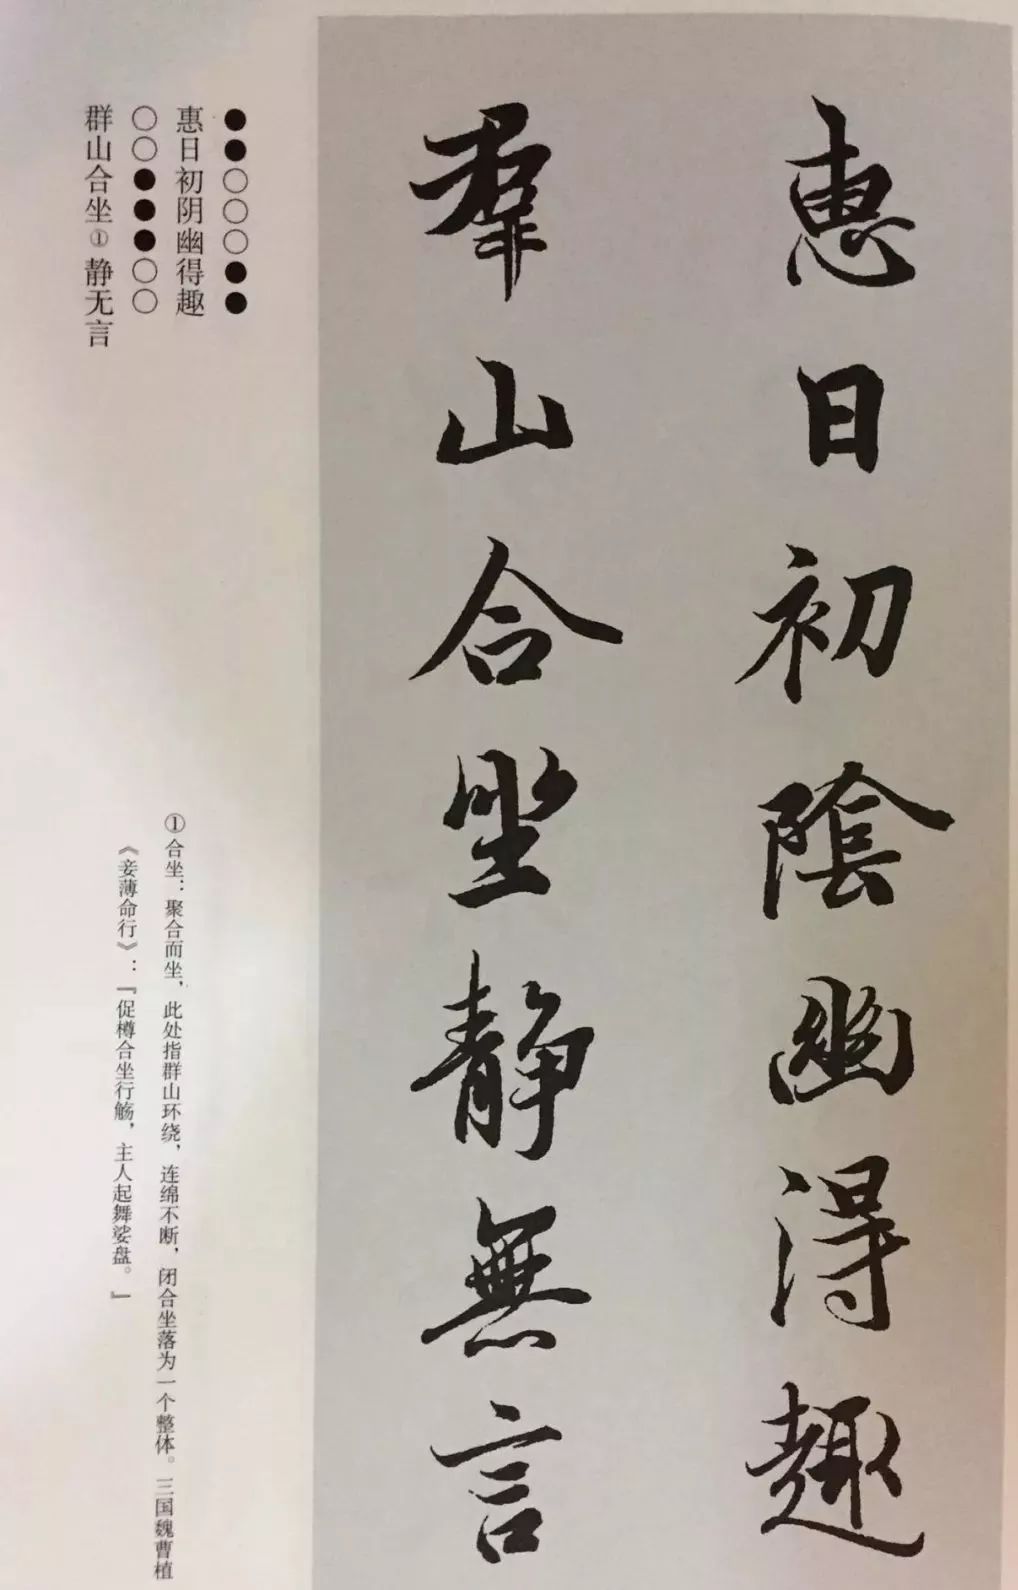 惠日初陰幽得趣
羣山合坐靜無言
●●○○○●●
惠日初阴幽得趣
○○●●●○○
群山合坐①静无言
①合坐：聚合而坐，此处指群山环绕，连绵不断，闭合坐落为一个整体。三国魏曹植
《妾薄命行》：『促樽合坐行觞，主人起舞娑盘。』